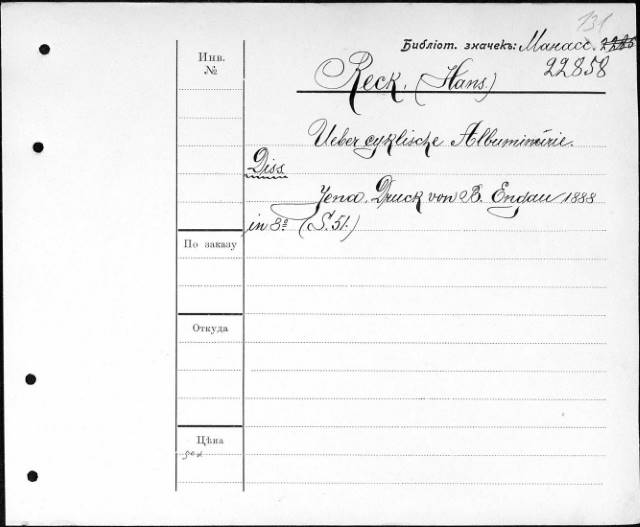 131
Библіот. значекъ: Манасс.
22858
Reck, (Hans.)
Инв.
№
Ueber cyklische Albuminurie.
Diss
Jena. Druck von B. Engau 1888
in 8º (S. 51.)
По заказу
Откуда
Цѣна